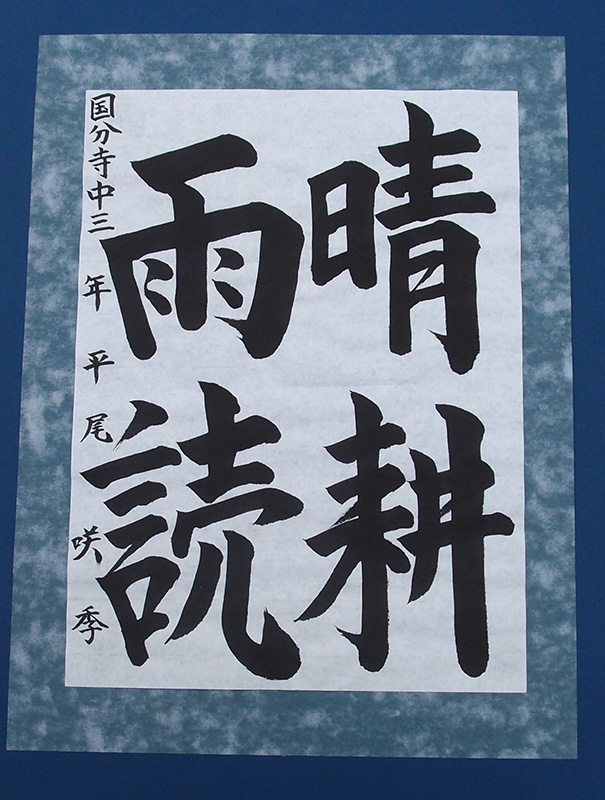 晴耕
雨読
国分寺中三年平尾咲季